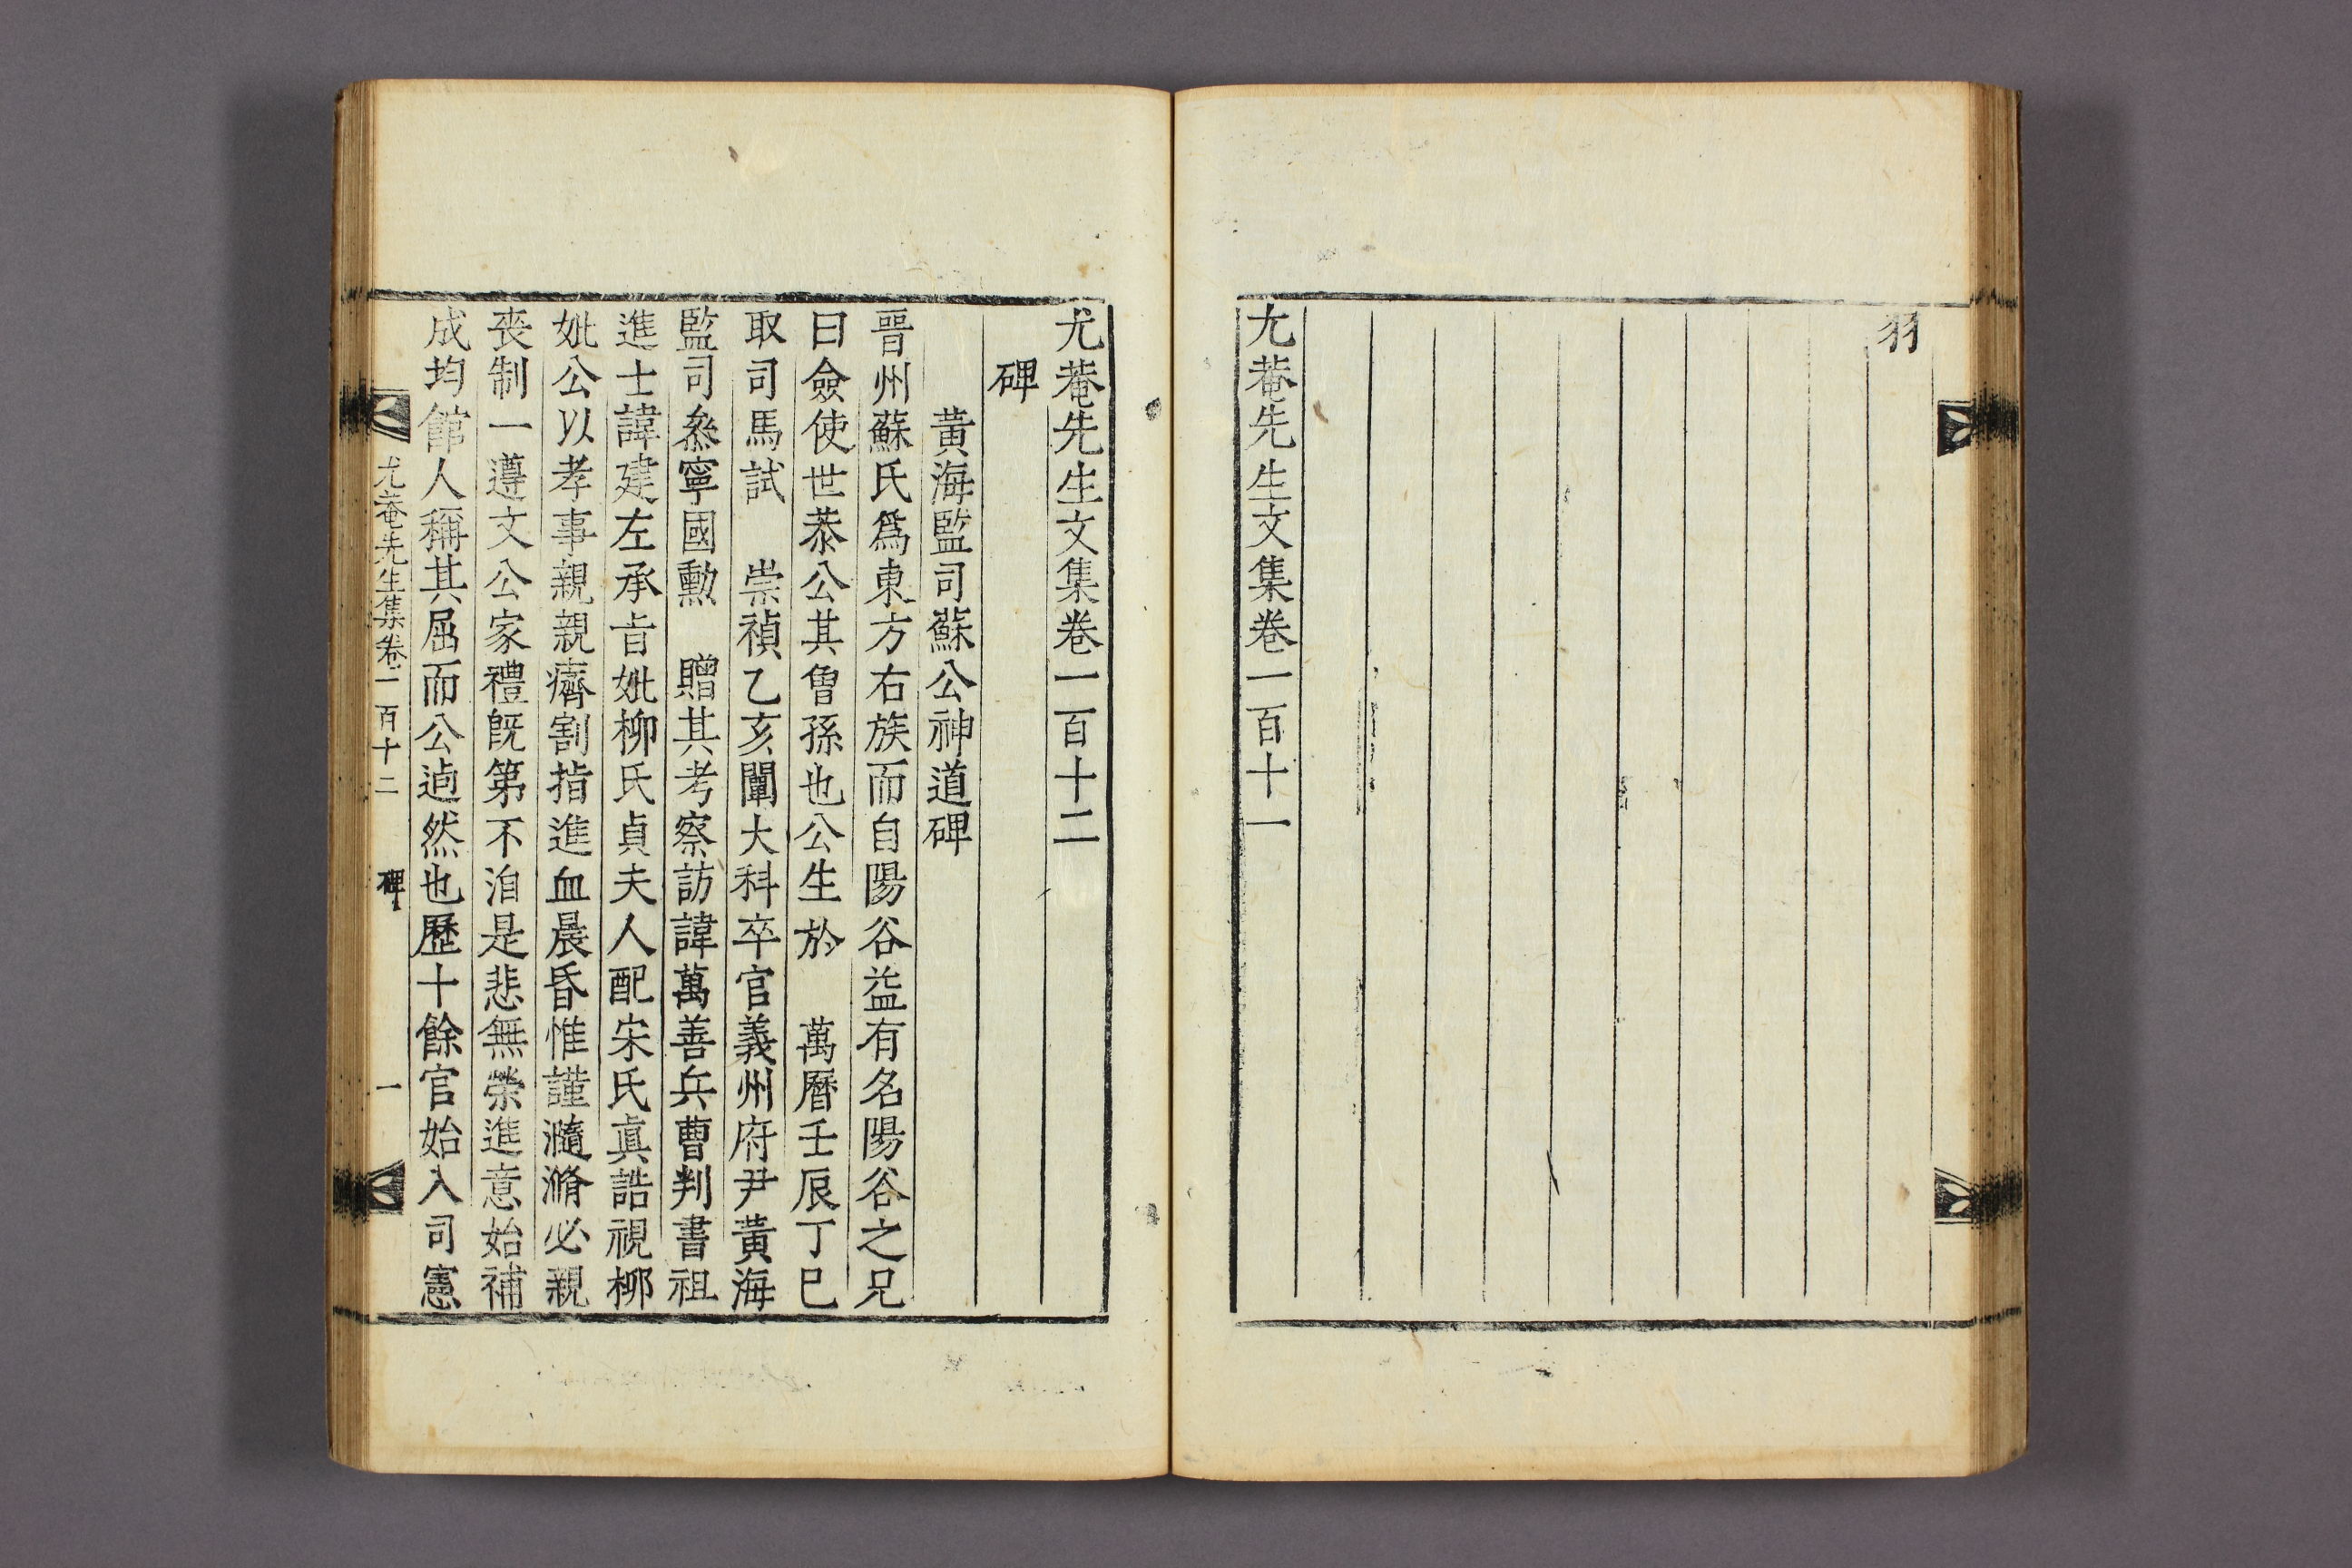 羽
尤菴先生文集卷一百十一
尤菴先生文集卷一百十二
碑
黃海監司蘇公神道碑
晉州蘇氏爲東方右族而自陽谷益有名陽谷之兄
曰僉使世恭公其曾孫也公生於 萬曆壬辰丁巳
取司馬試 崇禎乙亥闡大科卒官義州府尹黃海
監司叅寧國勳 贈其考察訪諱萬善兵曹判書祖
進士諱建左承旨妣柳氏貞夫人配宋氏眞誥視柳
妣公以孝事親親癠割指進血晨昏惟謹瀡滫必親
喪制一遵文公家禮旣第不洎是悲無榮進意始補
成均館人稱其屈而公逌然也歷十餘官始入司憲
尤菴先生集卷一百十二 碑 一